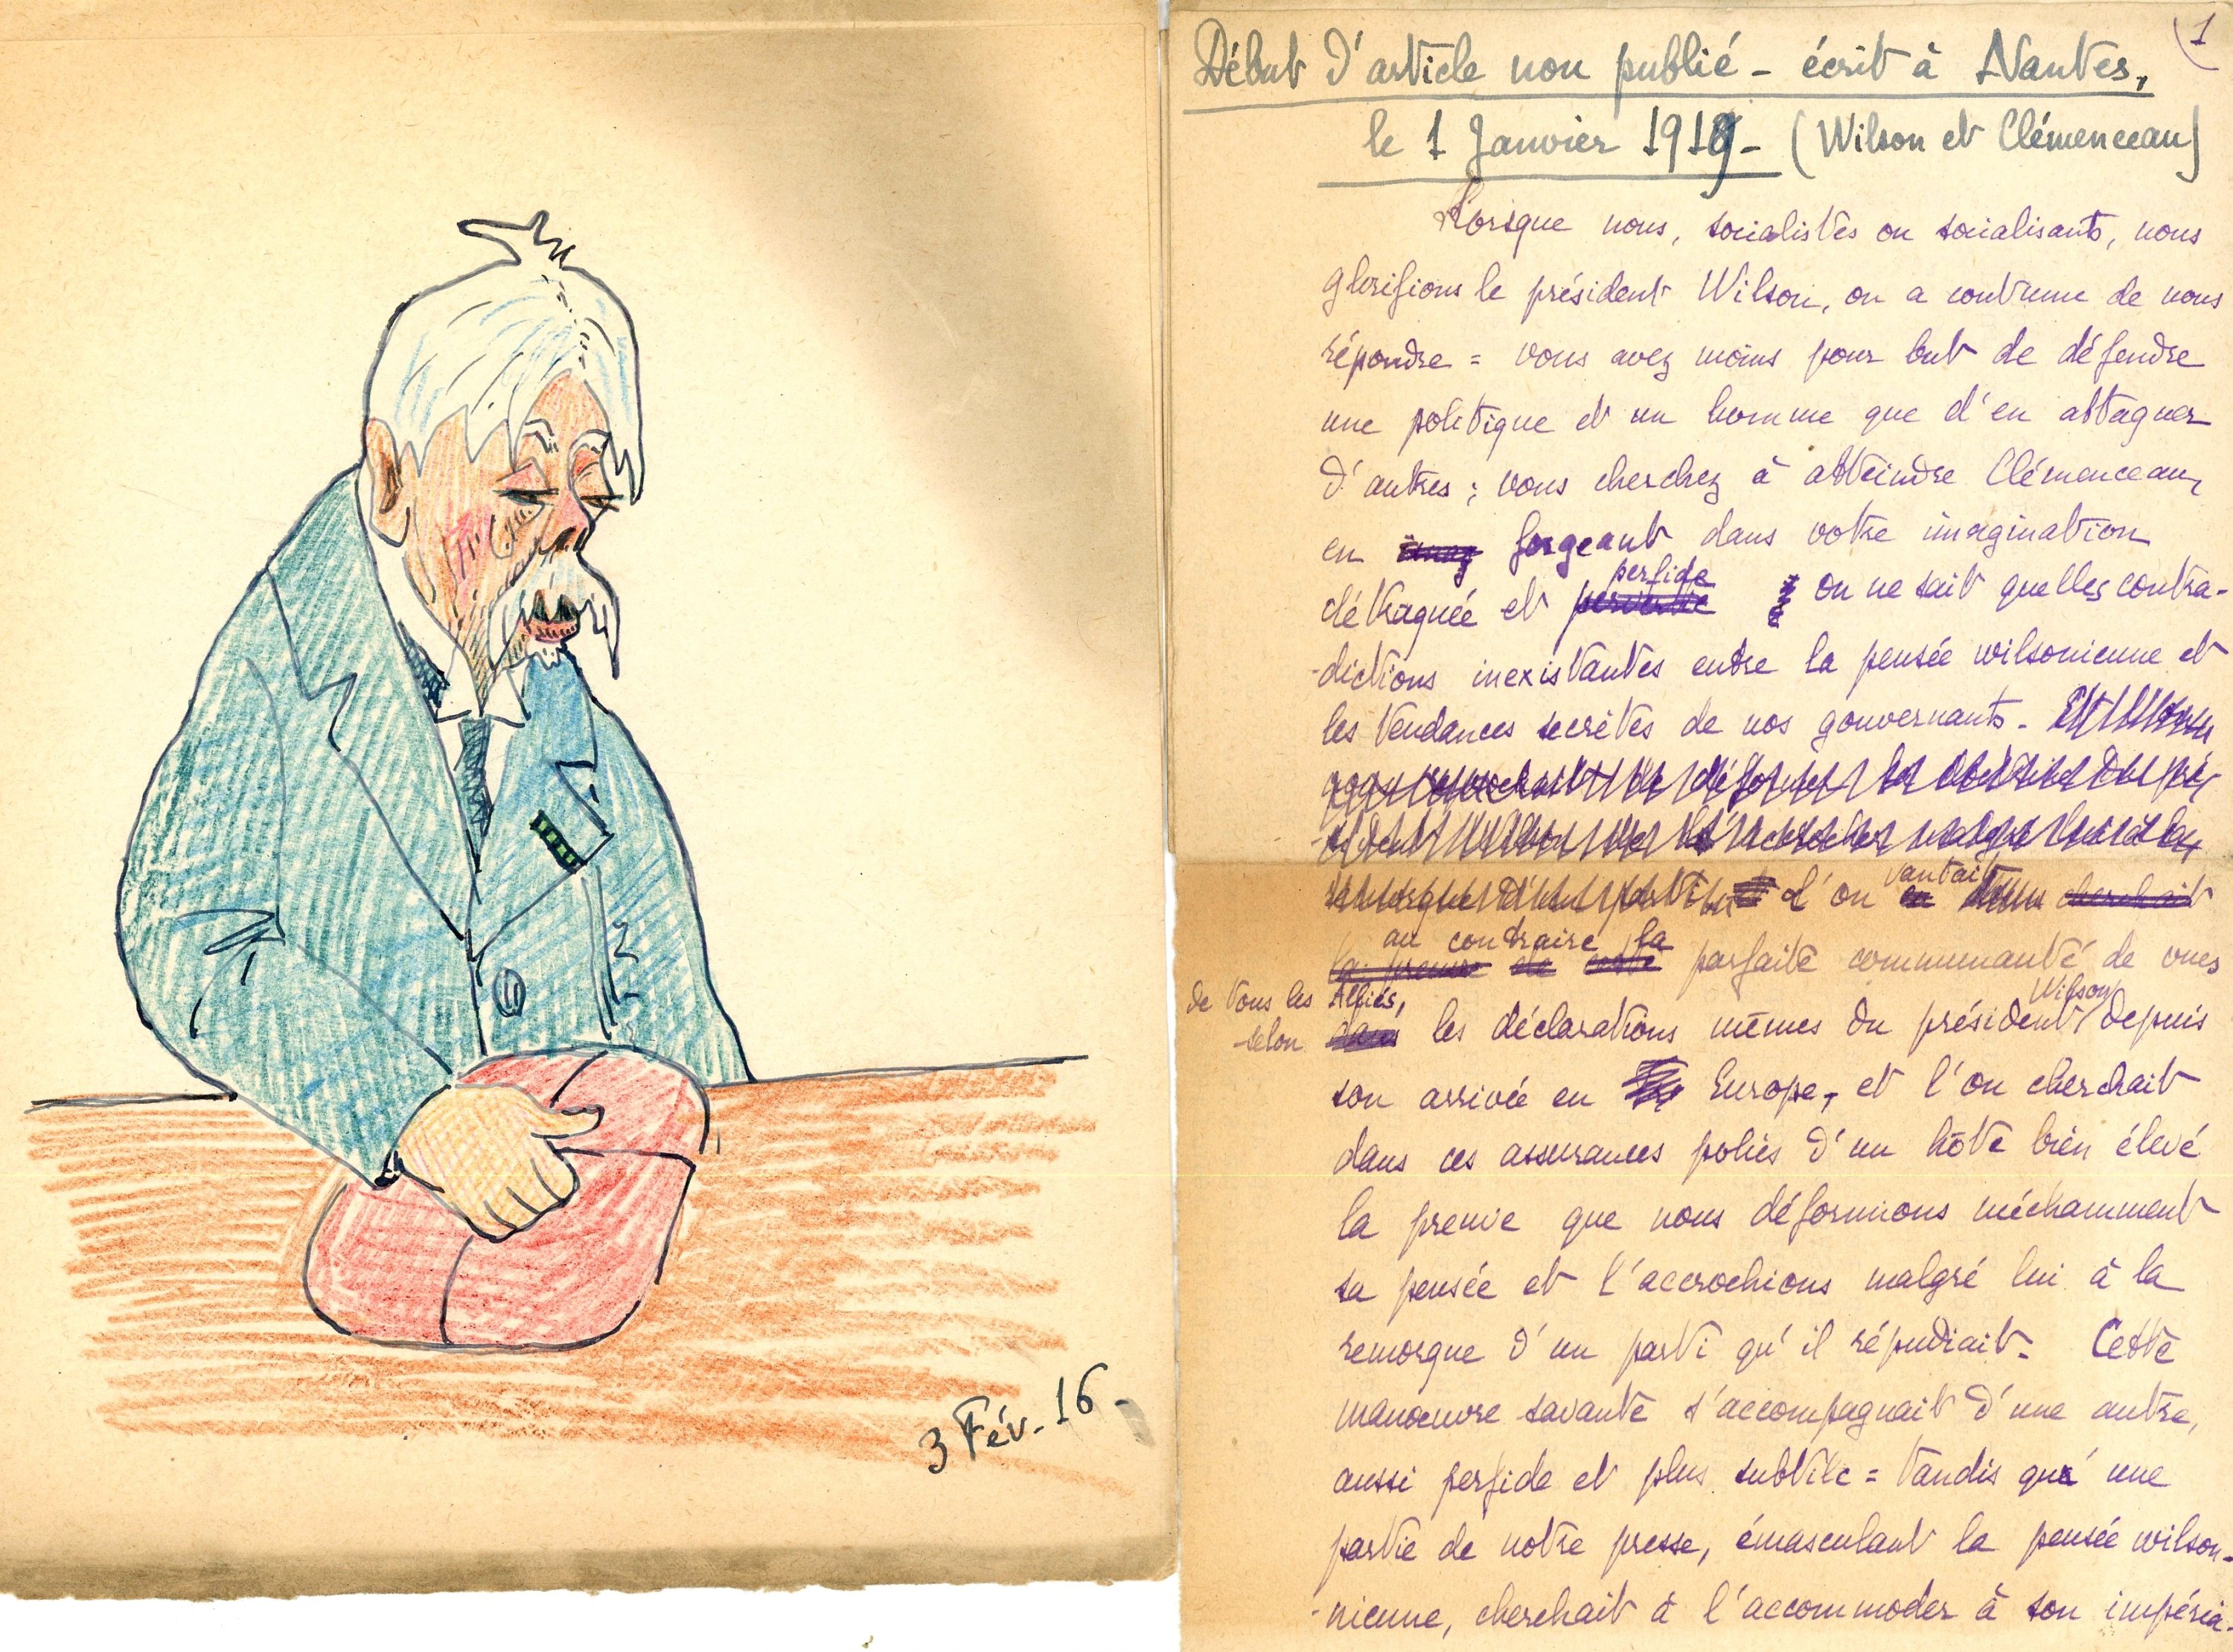 3 Fév. 16-
1
Début d'article non publié - écrit à Nantes,
le 1 Janvier 1919 - (Wilson et Clémenceau)
Lorsque nous, socialistes ou socialisants, nous
glorifions le président Wilson, on a coutume de nous
répondre = vous avez moins pour but de défendre
une politique et un homme que d'en attaquer
d'autres ; vous cherchez à atteindre Clémenceau,
en imag forgeant dans votre imagination
perfide
détraquée et pervertie on ne sait quelles contra-
-dictions inexistantes entre la pensée wilsonienne et
les tendances secrètes de nos gouvernants - Et l'on
reprochait de déformer la du pré
-sident Wilson malgré lui à la
vantait
remorque d'un parti l'on en cherchait
au contraire la
la preuve de cette parfaite communauté de vues
de tous les Alliés,
Wilson
selon dans les déclarations mêmes du président, depuis
son arrivée en Europe, et l'on cherchait
dans ces assurances polies d'un hôte bien élevé
la preuve que nous déformions méchamment
sa pensée et l'accrochions malgré lui à la
remorque d'un parti qu'il répudiait - Cette
manoeuvre savante s'accompagnait d'une autre,
aussi perfide et plus subtile = tandis qu'une
partie de notre presse, émasculant la pensée wilson-
-nienne, cherchait à l'accommoder à son impéria-